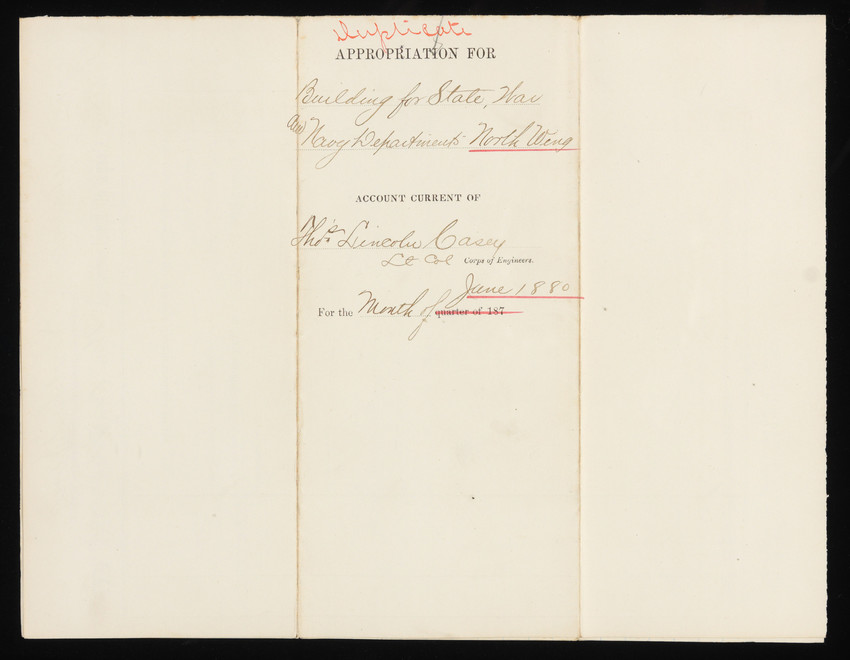 Duplicate
APPROPRIATION FOR
Building for State, War
and Navy Departments North Wing
ACCOUNT CURRENT OF
Thos. Lincoln Casey
Lt Col Corps of Engineers.
June 1880
For the Month of quarter of 187